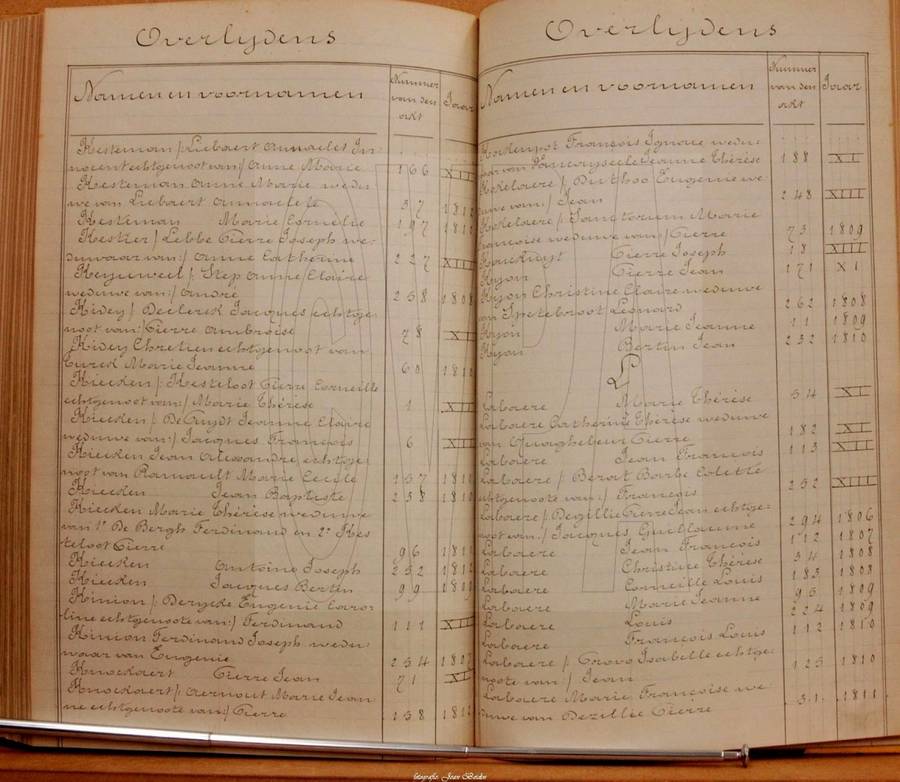 Overlijdens
Namen en voornamen
Nummer van den akt
Jaar
Kesteman /: Liebaert Annaclet In-
nocent echtgenoot van :/ Anne Marie 166 XII
Kesteman Anne Marie wedu-
we van Liebaert Annaclete 37 1812
Kesteman Marie Cornelie 197 1812
Kestier /: Lebbe Pierre Joseph we-
duwaar van :/ Anne Catherine 227 XIII
Keyuweil /: Step Anne Claire
weduwe van :/ André 258 1808
Kidey /: Declerck Jacques echtge-
noot van :/ Pierre Ambroise 78 XI
Kidey Chretien echtgenoot van
Turck Marie Jeanne 60 1810
Kiecken /: Kesteloot Pierre Corneille
echtgenoot van :/ Marie Thérèse 1 XII
Kiecken /: De Cuydt Jeanne Claire
weduwe van :/ Jacques François 6 XIII
Kiecken Jean Alexandre echtge-
noot van Ramault Marie Cecile 157 1810
Kiecken Jean Baptiste 258 1810
Kiecken Marie Thérèse weduwe
van 1° De Bergh Ferdinand en 2° Kes-
teloot Pierre 96 1811
Kiecken Antoine Joseph 252 1812
Kiecken Jacques Bertin 99 1810
Kinion /: Derycke Eugenie Caro-
line echtgenoote van :/ Ferdinand 111 XIII
Kinion Ferdinand Joseph wedu-
waar van Eugenie 254 1807
Knockaert Pierre Jean 71 XI
Knockaert /: Aernout Marie Jean-
ne echtgenoote van :/ Pierre 158 1812
Overlijdens
Namen en voornamen
Nummer van den akt
Jaar
François Ignace wedu-
waar van Jeanne Thérèse 188 XI
Kokelaere /: Duthoo Eugenie we-
duwe van :/ Jean 248 XIII
Kokelaere /: Marie
Françoise weduwe van :/ Pierre 73 1809
Pierre Joseph 18 XIII
Kujon Pierre Jean 171 XI
Kujon Christine Claire weduwe
van Spetebroot Leonard 262 1808
Kujon Marie Jeanne 11 1809
Kujon Bertin Jean 232 1810
L
Labaere Marie Thérèse 34 XI
Labaere Catherine Thérèse weduwe
van Quaghebeur Pierre 182 XI
Labaere Jean François 113 XIII
Labaere /: Beroit Barbe Colette
echtgenoote van :/ François 252 XIII
Labaere /: Dezillie Pierre Jean echtge-
noot van :/ Jacques Guillaume 294 1806
Labaere Jean François 112 1807
Labaere Christine Thérèse 34 1808
Labaere Corneille Louis 183 1808
Labaere Marie Jeanne 95 1809
Labaere Louis 224 1809
Labaere François Louis 112 1810
Labaere /: Isabelle echtge-
noote van :/ Jean 125 1810
Labaere Marie Françoise we-
duwe van Dezillie Pierre 31 1811
fotografie: Joan Beidin